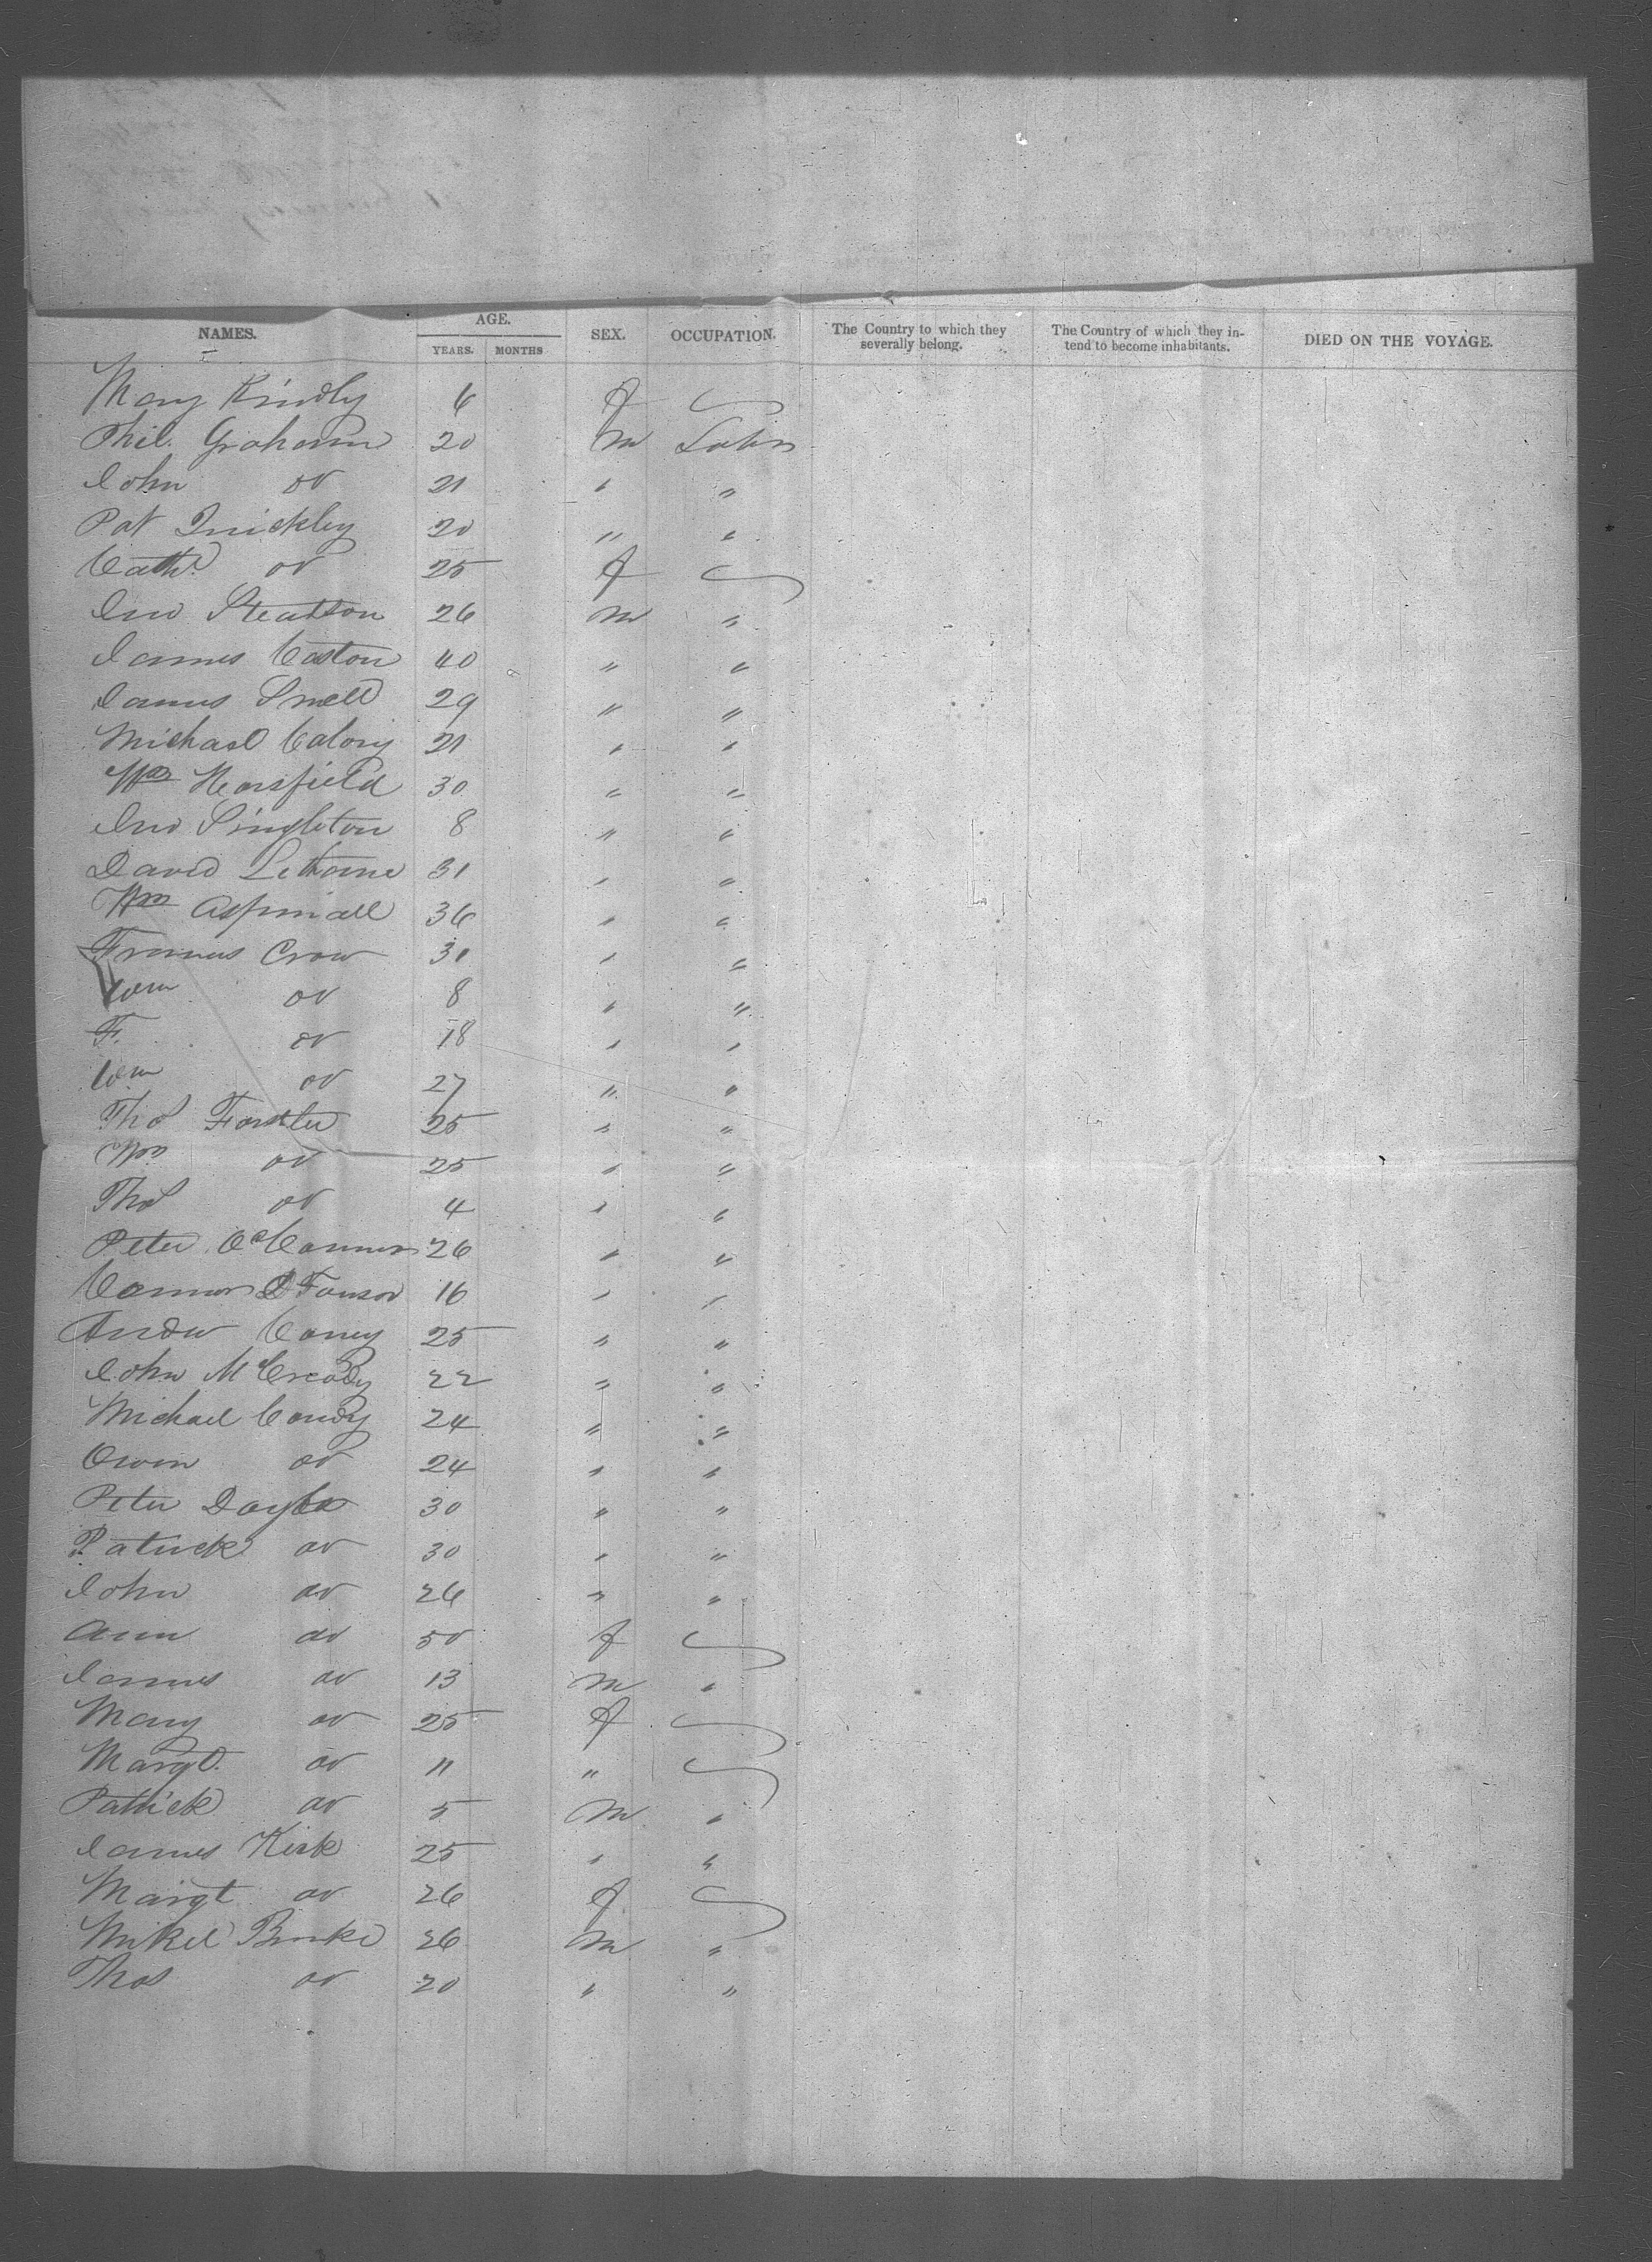 NAMES. AGE. SEX. OCCUPATION. The Country to which they severally belong. The Country of which they intend to become inhabitants. DIED ON THE VOYAGE.
YEARS. MONTHS
Mary Kindly 6 f
Phil. Graham 20 m Labr
John do 21 " "
Pat Quickley 20 " "
Cath. do 25 f
Jno Steatson 26 m "
James Caston 40 " "
James Snell 29 " "
Michael Calory 21 " "
Wm Horsfield 30 " "
Jno Singleton 8 " "
David 31 " "
Wm Aspinall 36 " "
Francis Crow 30 " "
Wm do 8 " "
F. do 18 " "
Wm do 27 " "
Thos 25 " "
Wm do 25 " "
Thos do 4 " "
Peter O'Connor 26 " "
Connor 16 " "
Andw Coney 25 " "
John McCready 22 " "
Michael Condy 24 " "
Owen do 24 " "
Peter Doyle 30 " "
Patrick do 30 " "
John do 26 " "
Ann do 50 f
James do 13 m "
Mary do 25 f
Margt. do 11 "
Patrick do 5 m "
James Kirk 25 " "
Margt do 26 f
Mikel Burke 26 m "
Thos do 20 " "